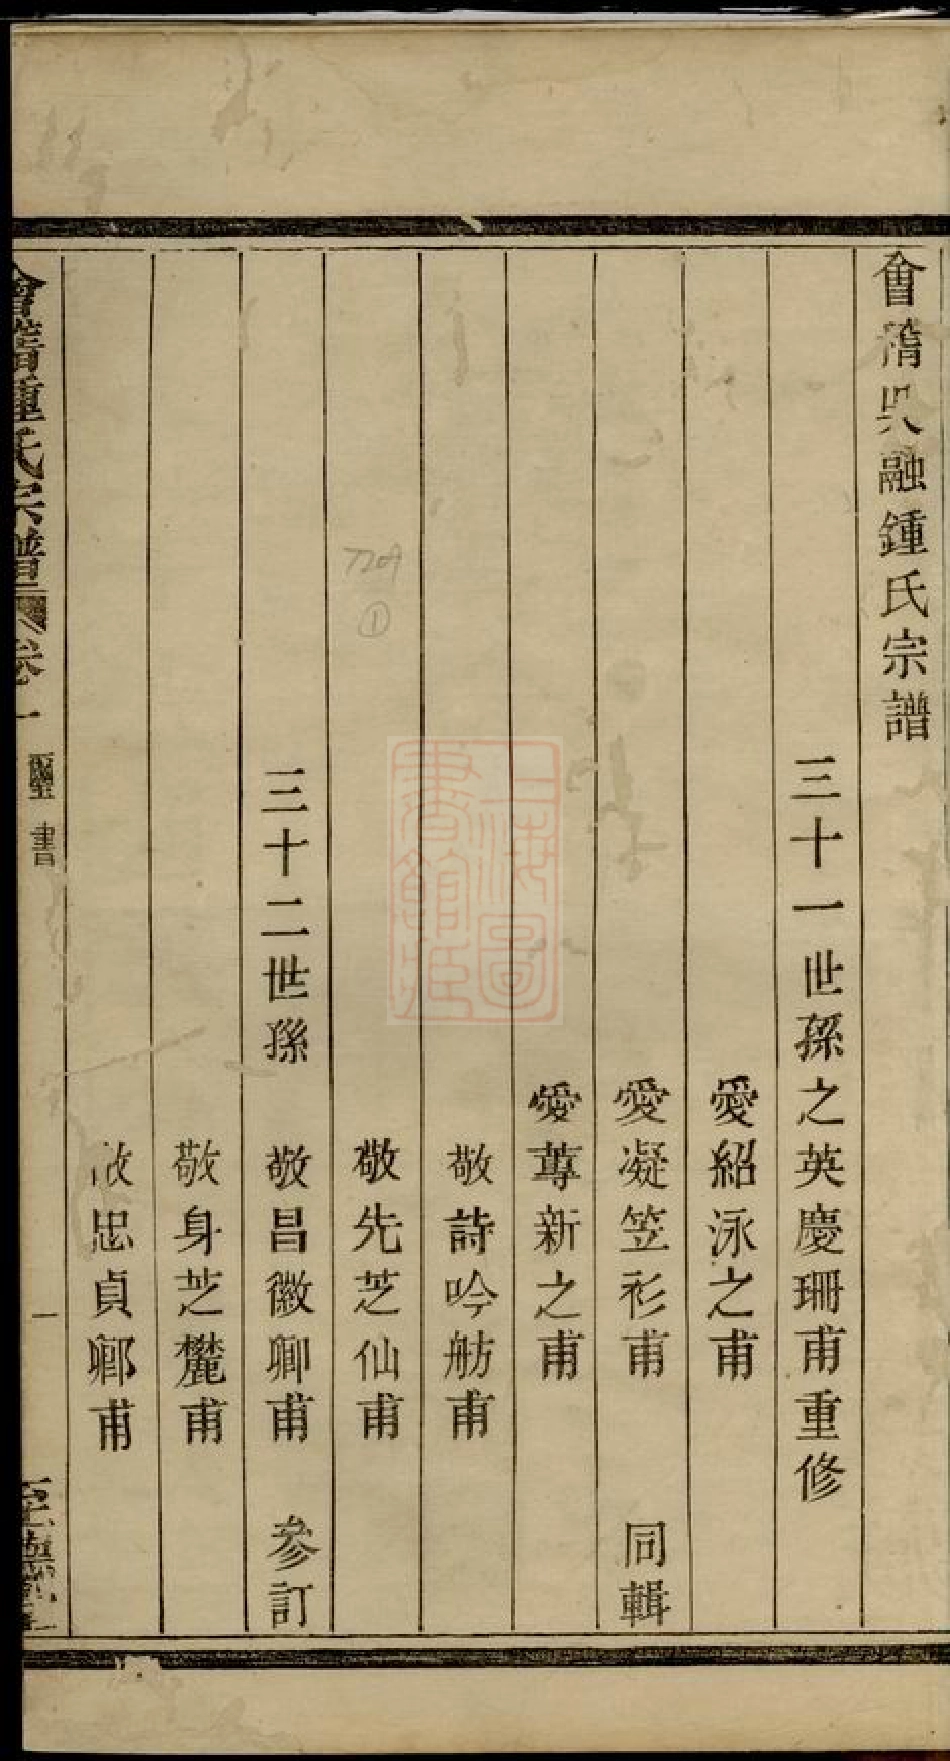 會稽吳融鍾氏宗譜
三十一世孫之英慶珊甫重修
愛紹泳之甫
愛凝笠衫甫 同輯
愛蓴新之甫
敬詩吟舫甫
敬先芝仙甫
三十二世孫 敬昌徽卿甫 參訂
敬身芝麓甫
敬忠貞卿甫
會稽鍾氏宗譜 卷一 璽書 一
上海圖書館藏